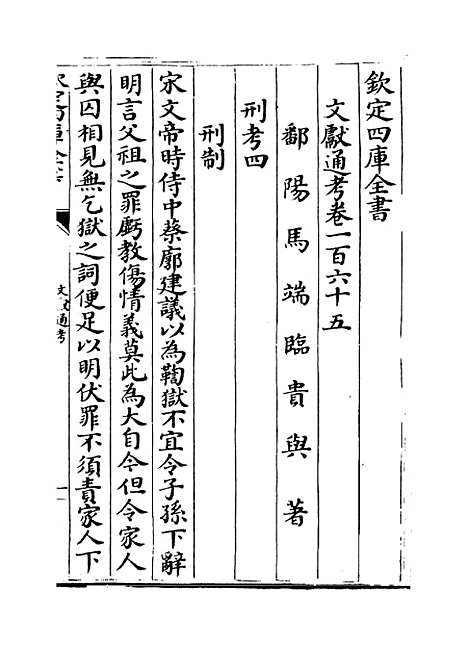 欽定四庫全書
文獻通考卷一百六十五
鄱陽馬端臨貴與著
刑考四
刑制
宋文帝時侍中蔡廓建議以為鞫獄不宜令子孫下辭
明言父祖之罪虧教傷情義莫此為大自今但令家人
與囚相見無乞獄之詞便足以明伏罪不須責家人下
文獻通考
一